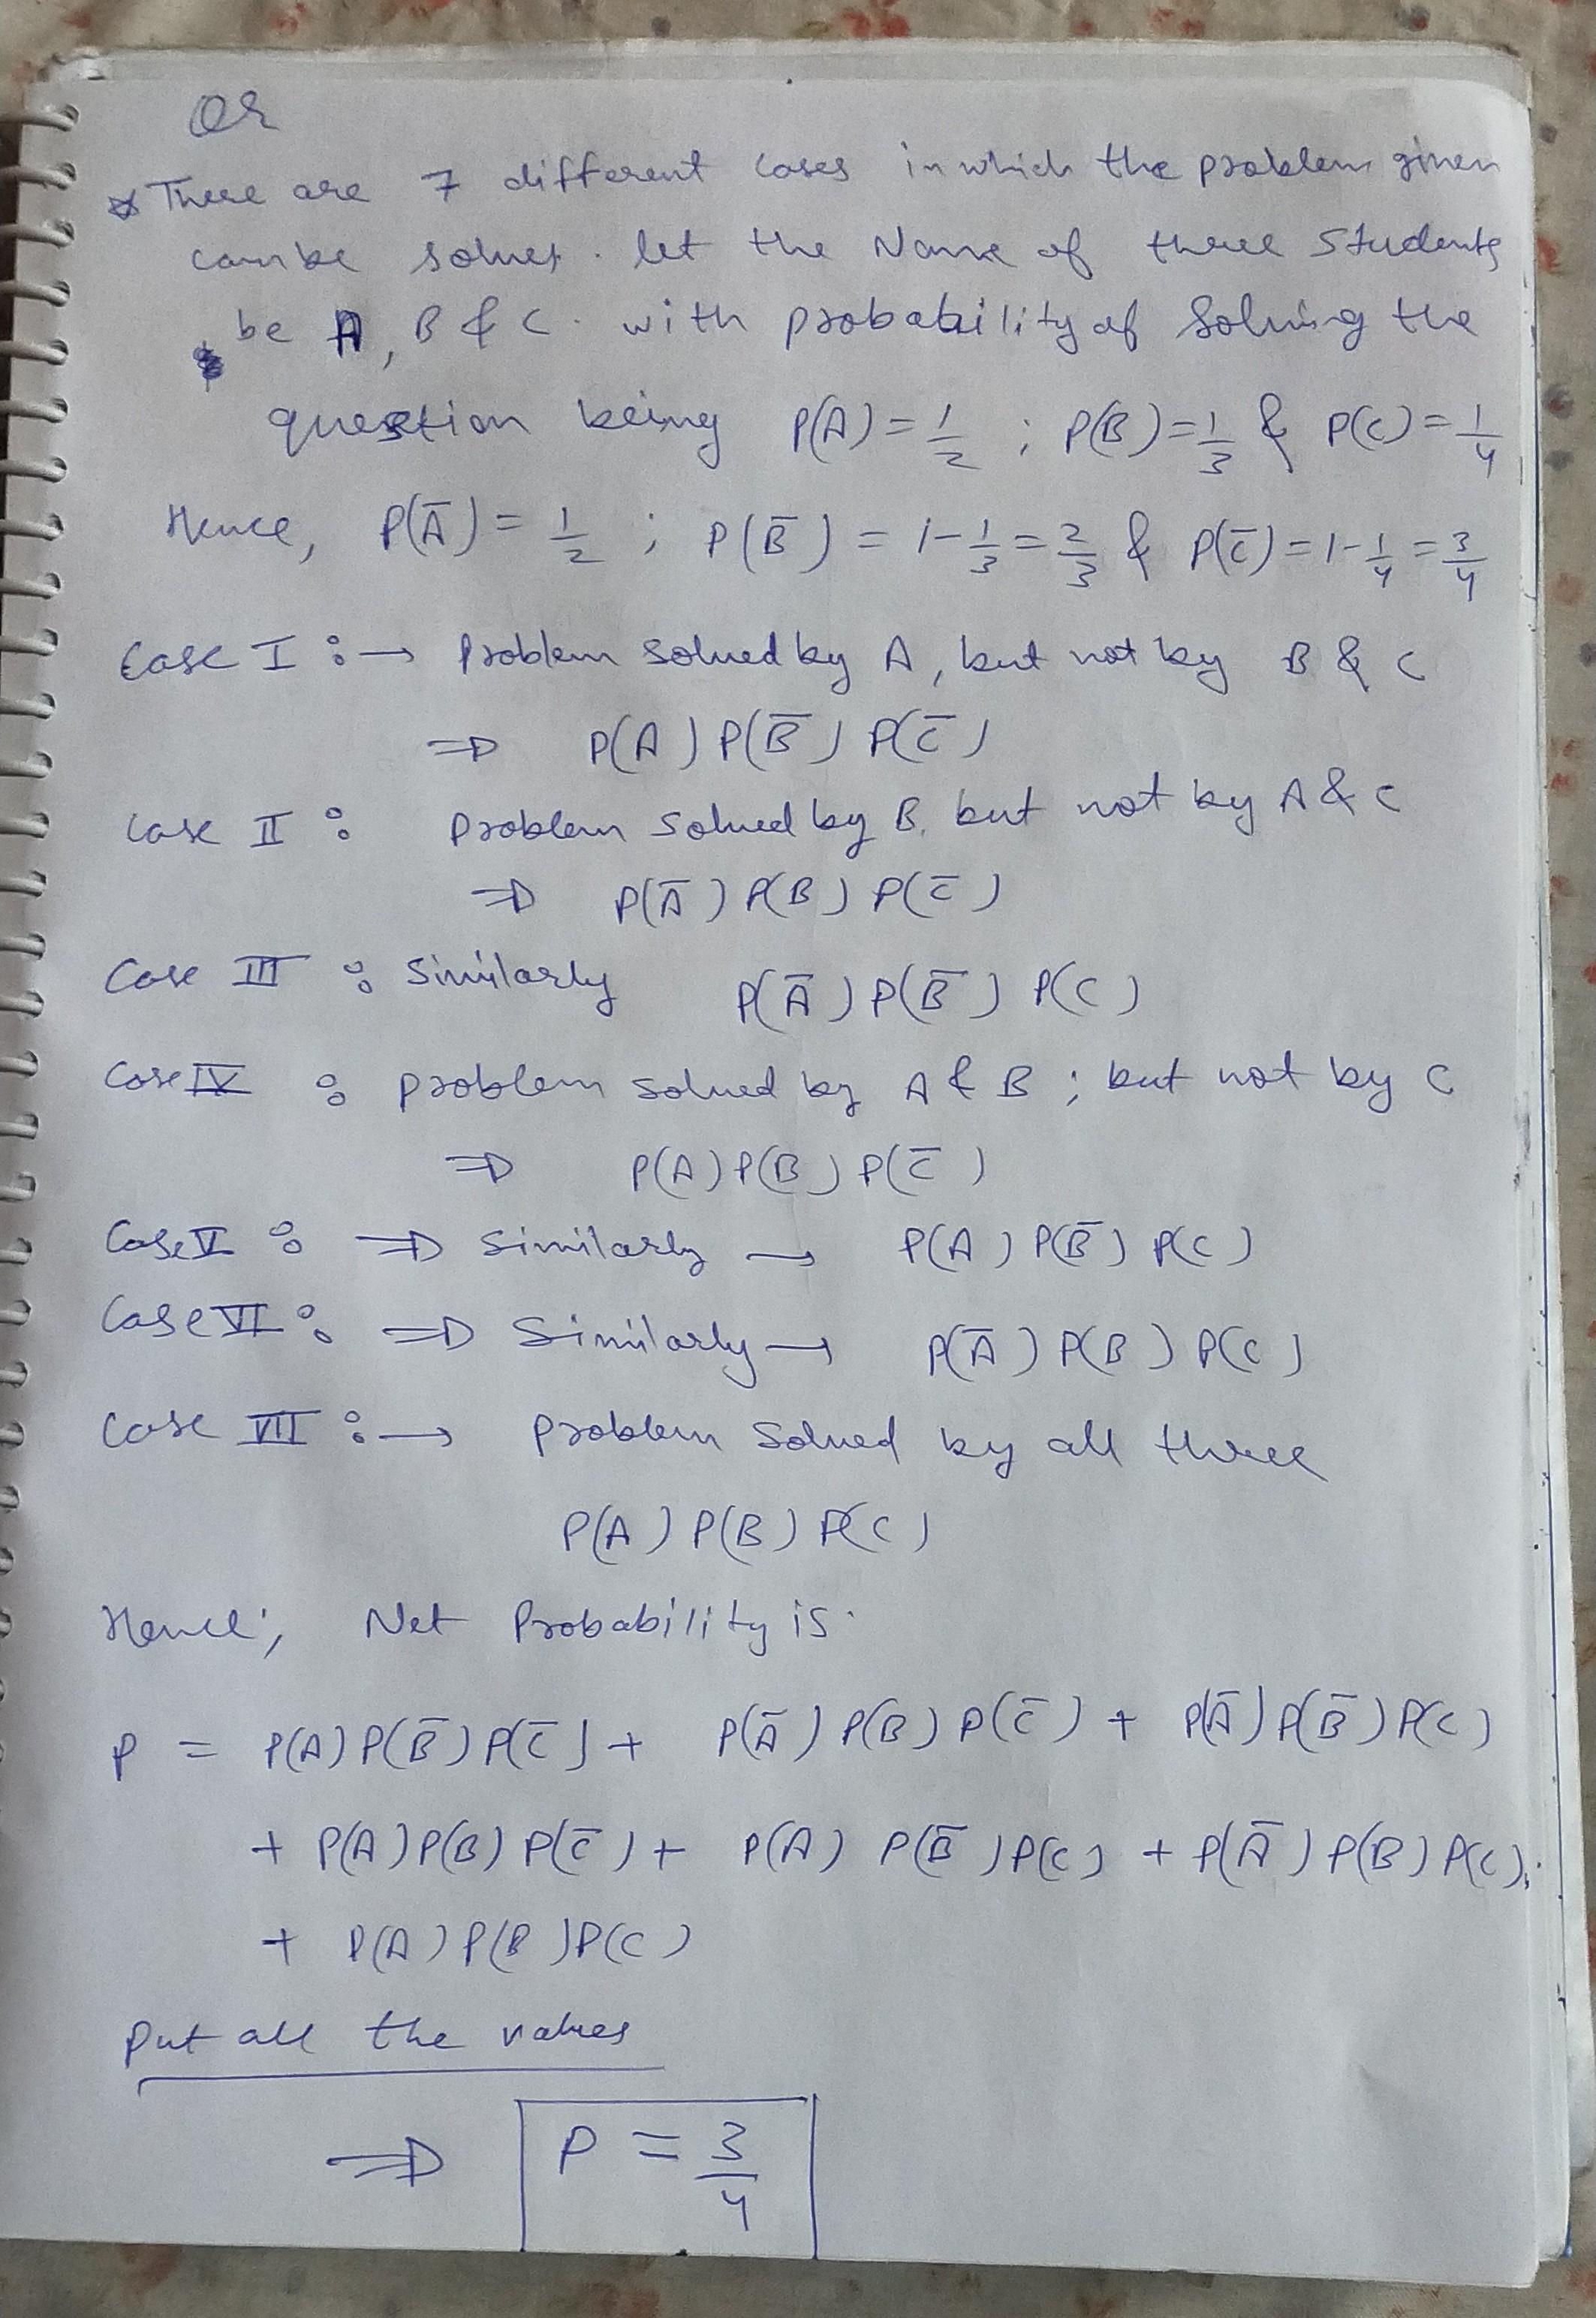 OR
* There are 7 different cases in which the problem given
can be solves. let the Name of three Students
be A, B & C. with probability of Solving the
question being P(A) = 1/2 ; P(B) = 1/3 & P(C) = 1/4
Hence, P(Ā) = 1/2 ; P(B̄) = 1-1/3 = 2/3 & P(C̄) = 1-1/4 = 3/4
Case I :→ Problem solved by A, but not by B & C
⇒ P(A) P(B̄) P(C̄)
Case II : Problem solved by B, but not by A & C
⇒ P(Ā) P(B) P(C̄)
Case III : Similarly P(Ā) P(B̄) P(C)
Case IV : Problem solved by A & B ; but not by C
⇒ P(A) P(B) P(C̄)
Case V : ⇒ Similarly → P(A) P(B̄) P(C)
Case VI : ⇒ Similarly → P(Ā) P(B) P(C)
Case VII :→ Problem Solved by all three
P(A) P(B) P(C)
Hence; Net Probability is.
P = P(A) P(B̄) P(C̄) + P(Ā) P(B) P(C̄) + P(Ā) P(B̄) P(C)
+ P(A) P(B) P(C̄) + P(A) P(B̄) P(C) + P(Ā) P(B) P(C)
+ P(A) P(B) P(C)
Put all the values
⇒ P = 3/4